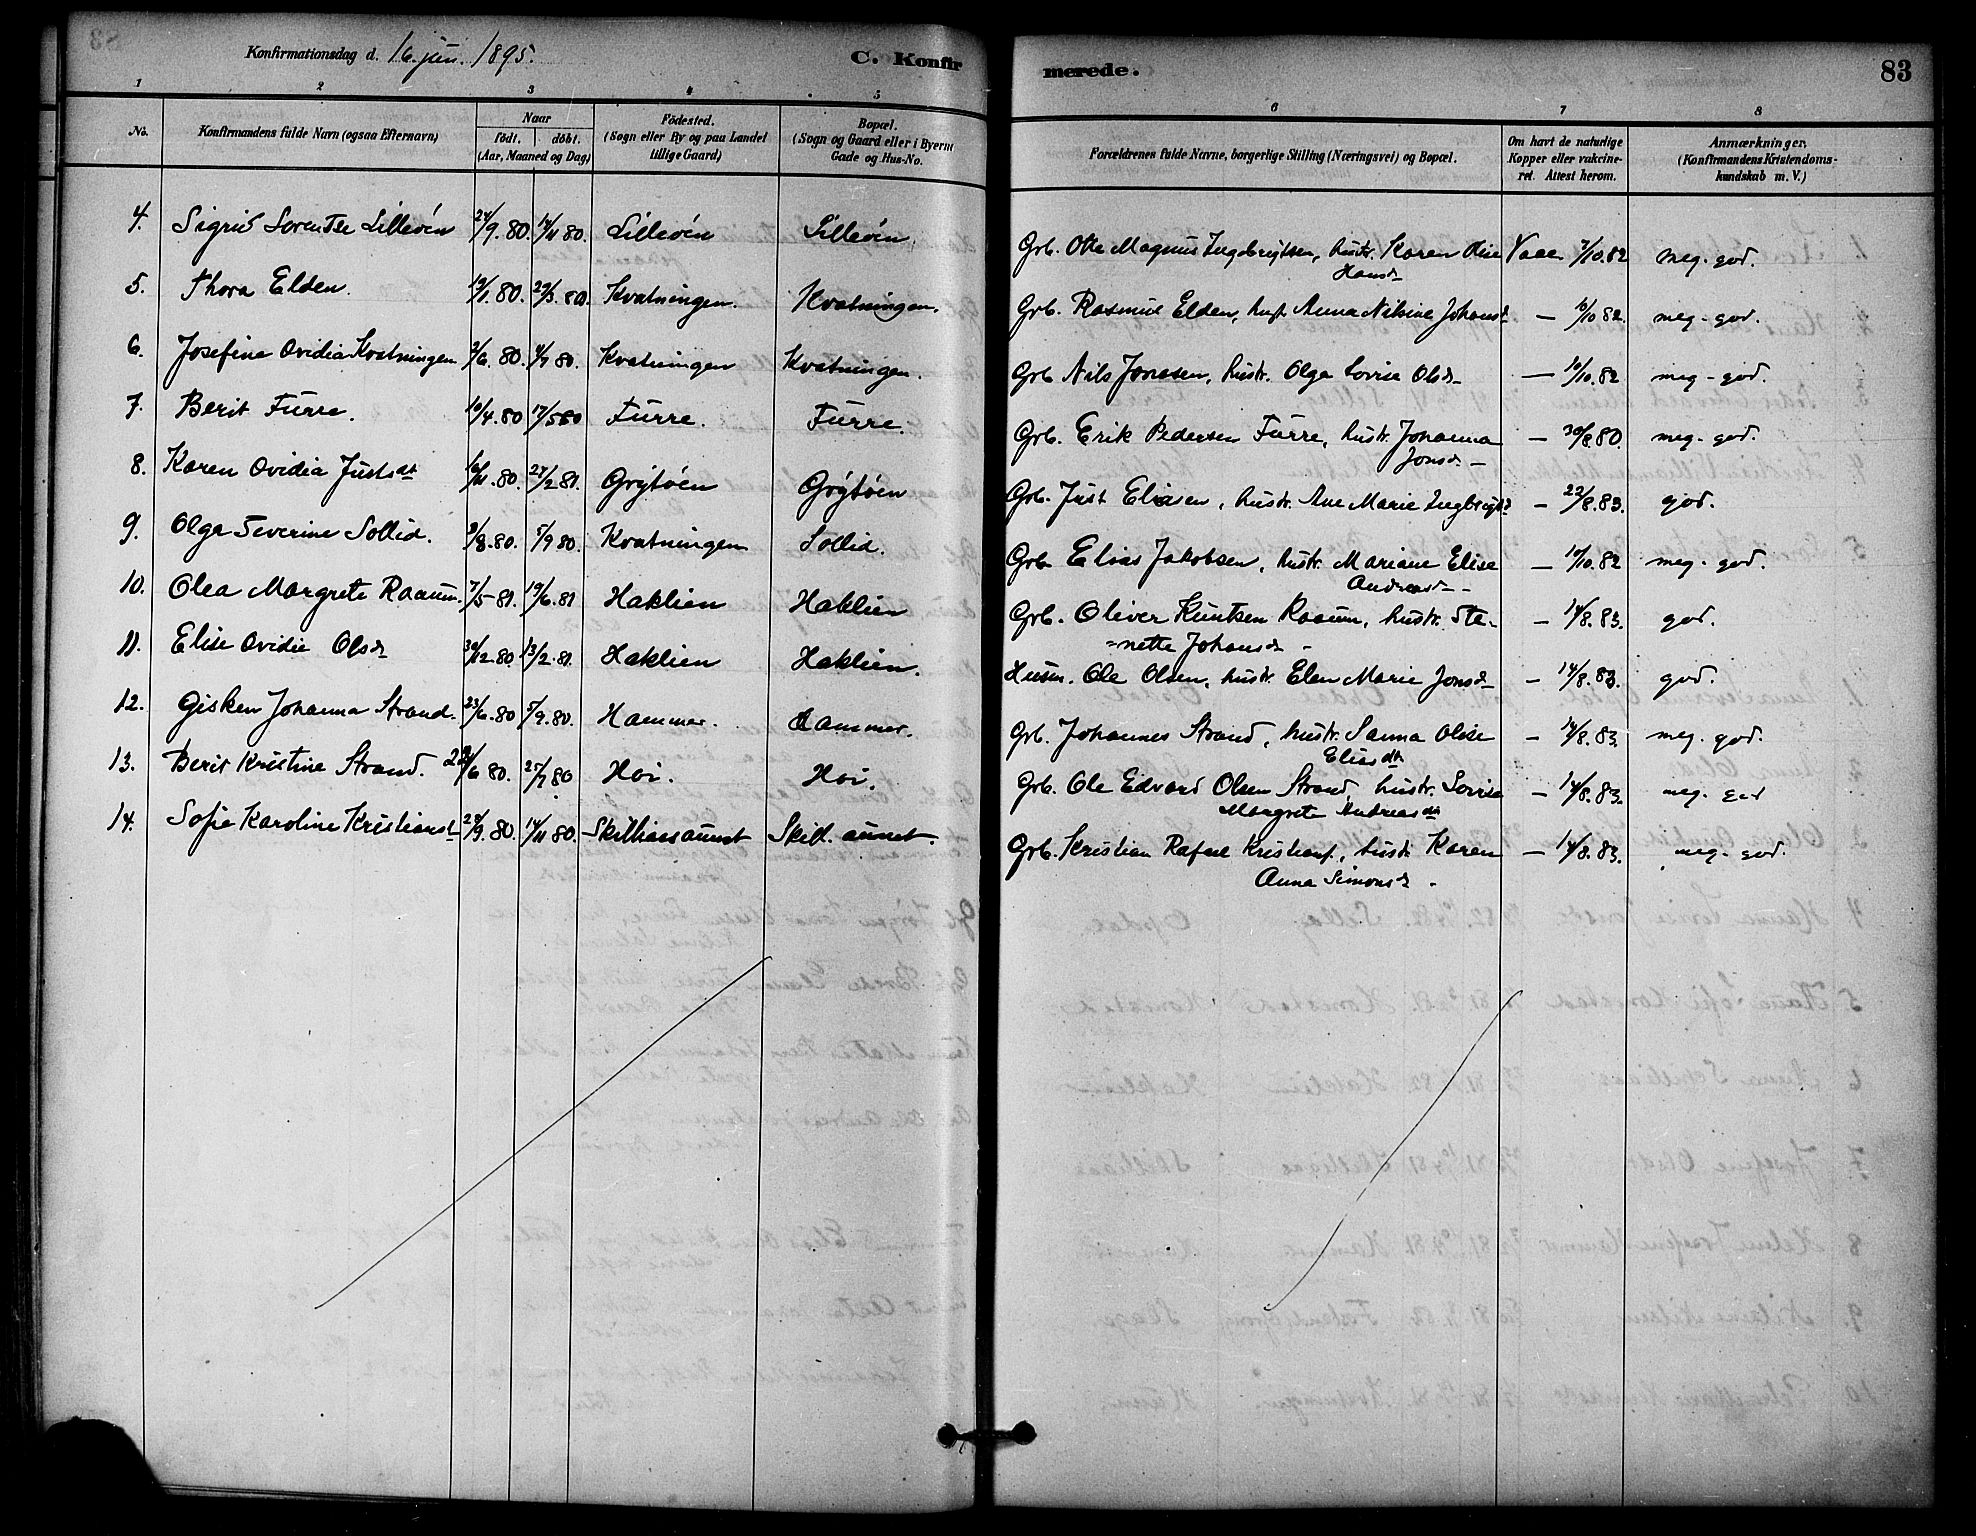 Konfirmationsdag d. 16. jun. 1895. C. Konfirmerede. 83
1 2 3 4 5 6 7 8
No. Konfirmandens fulde Navn (ogsaa Efternavn) Naar født. døbt. (Aar, Maaned og Dag) Födested. (Sogn eller By og paa Landet tillige Gaard) Bopæl. (Sogn og Gaard eller i Byerne Gade og Hus-No. Forældrenes fulde Navne, borgerlige Stilling (Næringsvei) og Bopæl. Om havt de naturlige Kopper eller vakcineret. Attest herom. Anmærkninger. (Konfirmandens Kristendomskundskab m. V.)
4. Sigrid Lorentse Lilleöen 24/9.80. 14/11 80. Lilleöen Lilleöen. Grb. Otte Magnus Ingebrigtsen, hustr. Karen Oline Hansd. Vacc. 7/10.82 meg. god.
5. Thora Elden. 19/1.80. 29/3.80. Kvatningen. Kvatningen. Grb. Rasmus Elden, hust. Anna Nilsine Johansd. — 10/10 82. meg. god.
6. Josefine Ovidia Kvatningen 2/6.80. 4/7 80. Kvatningen Kvatningen. Grb Nils Jonasen, hustr. Olga Lovise Olsd. — 10/10.82 meg. god.
7. Berit Furre. 10/4.80 17/5 80 Furre. Furre. Grb. Erik Pedersen Furre, hustr. Johanna Jonsd. — 30/8.80. meg. god.
8. Karen Ovidia Justsdt 16/11.80. 27/2.81. Grytöen Grytöen Grb. Just Eliasen, hustr. Ane Marie Ingbrigtsd. — 22/8.83. god.
9. Olga Severine Sollid. 9/8.80. 5/9 80. Kvatningen Sollid. Grb Elias Jakobsen, hustr. Mariane Elise Andreasd. — 10/10.82 meg. god.
10. Olea Margrete Raaum. 7/5 81. 19/6.81 Haklien Haklien Grb. Oliver Kuntsen Raaum, hustr. Ste-
nette Johansd. — 14/8.83. god.
11. Elise Ovidie Olsd. 30/12.80. 13/2.81. Haklien Haklien. Husm. Ole Olsen, hustr. Elen Marie Jonsd. — 14/8.83. god.
12. Gisken Johanna Strand. 23/6.80 5/9.80. Hammer. Hammer. Grb. Johannes Strand, hustr. Sanna Olise Eliasdt. — 14/8.83. meg. god.
13. Berit Kristine Strand. 22/6 80. 25/7 80 Hoi. Hoi. Grb. Ole Edvard Olsen Strand, hustr. Lovise Margrete Andreasdt. — 14/8.83. meg. god
14. Sofie Karoline Kristiansd. 29/9.80. 14/11 80. Skilliasaunet Skill. aunet. Grb. Kristian Rafael Kristians., hustr. Karen Anna Simonsd. — 14/8.83. meg. god.